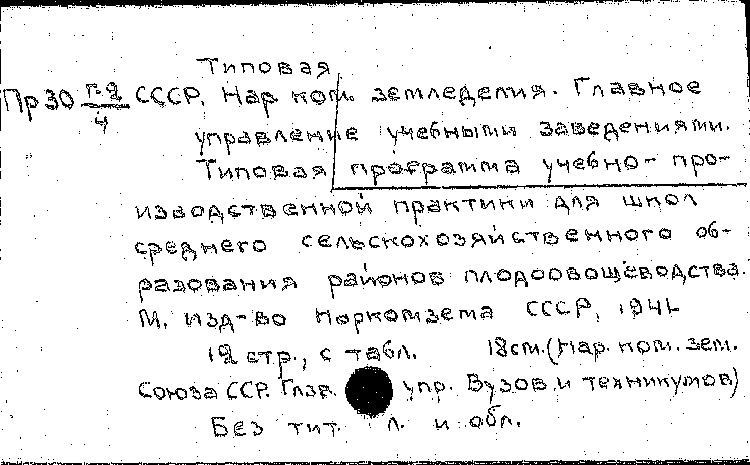 Типовая
Пр 30 г-2/4 СССР. Нар ком. земледелия. Главное
управление учебными заведениями.
Типовая программа учебно-про-
изводственной практики для школ
среднего сельскохозяйственного об-
разования районов плодоовощеводства.
М. изд-во Наркомзема СССР, 1941
12 стр., с табл. 18см. (Нар. ком. зем.
Союза ССР. Глав. упр. Вузов и техникумов)
Без тит. л. и обл.